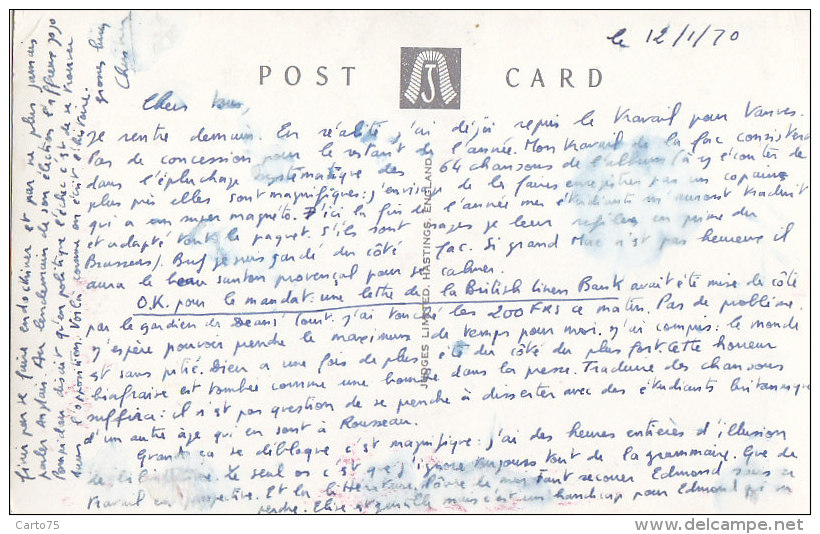 le 12/1/70
POST CARD
Chers tous,
Je rentre demain. En réalité j'ai déjà repris le travail pour Vanves.
Pas de concession pour le restant de l'année. Mon travail de la fac consistera
dans l'épluchage systématique des 64 chansons de l'album (à y écouter de
plus près elles sont magnifiques : j'envisage de la faire enregistrer par un copain
qui a un super magnéto. D'ici la fin de l'année mes étudiants m'auront traduit
et adapté tout le paquet. S'ils sont sages je leur refilerai en prime du
Brassens). Bref je suis gardé du côté fac. Si grand Mac n'est pas heureux il
aura le beau santon provençal pour se calmer.
O.K. pour le mandat : une lettre de la British Linen Bank avait été mise de côté
par le gardien de Deans' Court. j'ai touché les 200 FRS ce matin. Pas de problème.
j'espère pouvoir prendre le maximum de temps pour moi. j'ai compris : le monde
est sans pitié. Dieu a une fois de plus été du côté du plus fort cette horreur
biafraise est tombée comme une bombe dans la presse. Traduire des chansons
suffira : il n'est pas question de se prendre à disserter avec des étudiants britanniques
d'un autre âge qui en sont à Rousseau.
Quant à ça se débloque c'est magnifique : j'ai des heures entières d'illusion
de la Le seul os c'est que j'ignore toujours tout de la grammaire. Que de
travail en perspective. Et la littérature. faut secouer Edmond sous ce
c'est un handicap pour Edmond qui va
perdre. Elise et
finir par se faire endoctriner et par ne plus jamais
parler Anglais. Au lendemain de son élection l'affreux jojo
Pompidou disait qu'en politique l'échec c'est de se trouver
dans l'opposition. Voilà comme on écrit l'histoire.
grosses bises
JUDGES LIMITED, HASTINGS, ENGLAND
Carto75
www.delcampe.net